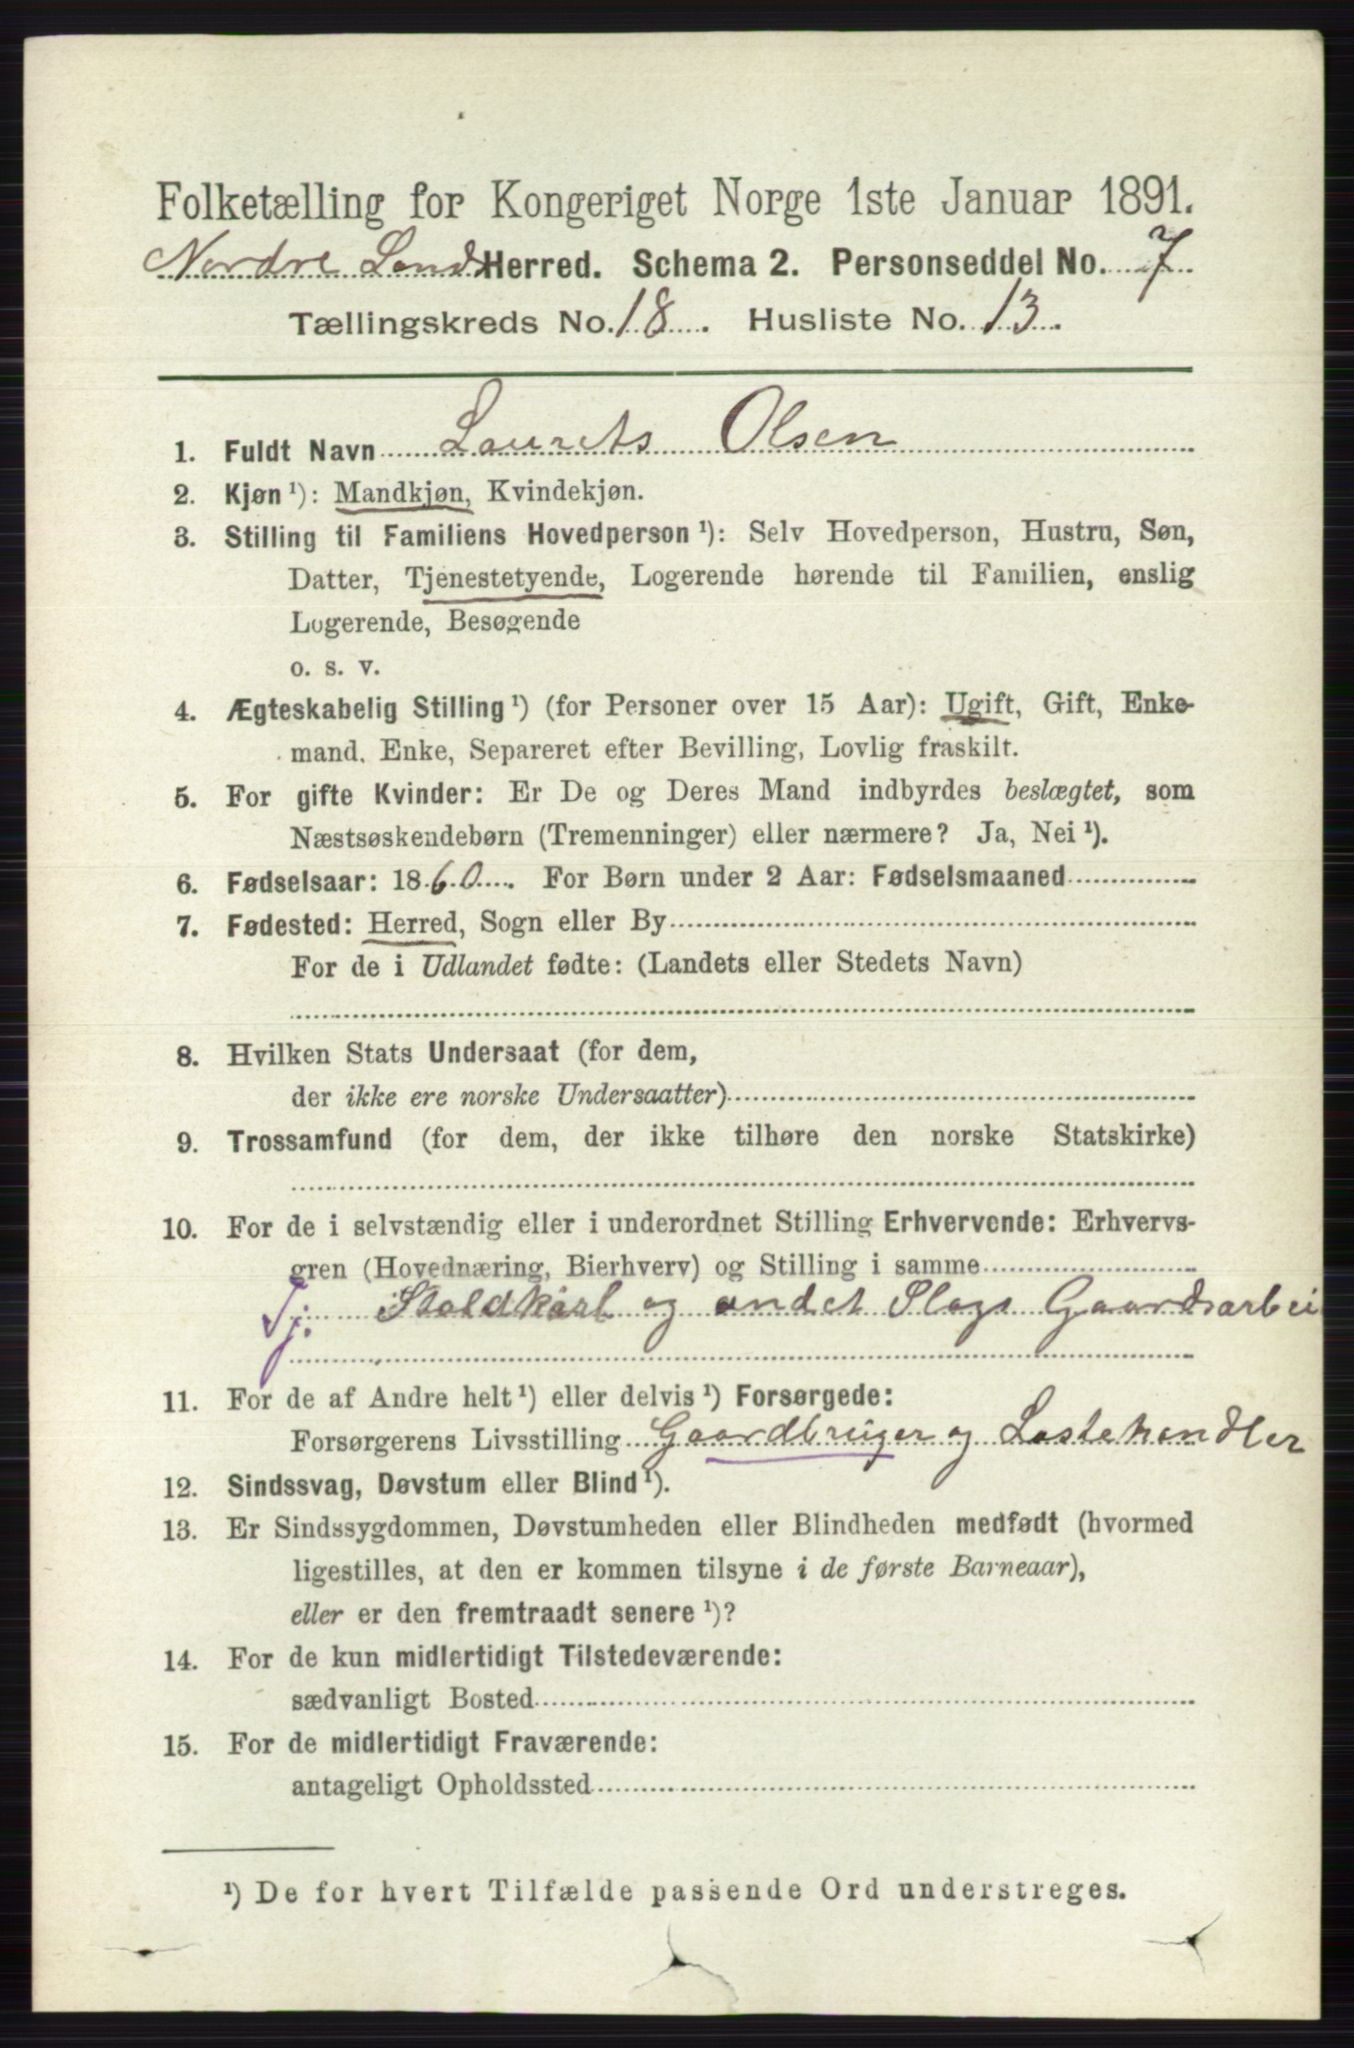 Folketælling for Kongeriget Norge 1ste Januar 1891.
Nordre Lands Herred. Schema 2. Personseddel No. 7
Tællingskreds No. 18. Husliste No. 13.
1. Fuldt Navn Laurits Olsen
2. Kjøn ¹): Mandkjøn, Kvindekjøn.
3. Stilling til Familiens Hovedperson ¹): Selv Hovedperson, Hustru, Søn,
Datter, Tjenestetyende, Logerende hørende til Familien, enslig
Logerende, Besøgende
o. s. v.
4. Ægteskabelig Stilling ¹) (for Personer over 15 Aar): Ugift, Gift, Enke-
mand, Enke, Separeret efter Bevilling, Lovlig fraskilt.
5. For gifte Kvinder: Er De og Deres Mand indbyrdes beslægtet, som
Næstsøskendebørn (Tremenninger) eller nærmere? Ja, Nei ¹).
6. Fødselsaar: 1860. For Børn under 2 Aar: Fødselsmaaned
7. Fødested: Herred, Sogn eller By
For de i Udlandet fødte: (Landets eller Stedets Navn)
8. Hvilken Stats Undersaat (for dem,
der ikke ere norske Undersaatter)
9. Trossamfund (for dem, der ikke tilhøre den norske Statskirke)
10. For de i selvstændig eller i underordnet Stilling Erhvervende: Erhvervs-
gren (Hovednæring, Bierhverv) og Stilling i samme
Tj. Staldkarl og andet Slags Gaardsarbei
11. For de af Andre helt ¹) eller delvis ¹) Forsørgede:
Forsørgerens Livsstilling Gaardbruger og Lastehandler
12. Sindssvag, Døvstum eller Blind ¹).
13. Er Sindssygdommen, Døvstumheden eller Blindheden medfødt (hvormed
ligestilles, at den er kommen tilsyne i de første Barneaar),
eller er den fremtraadt senere ¹)?
14. For de kun midlertidigt Tilstedeværende:
sædvanligt Bosted
15. For de midlertidigt Fraværende:
antageligt Opholdssted
¹) De for hvert Tilfælde passende Ord understreges.